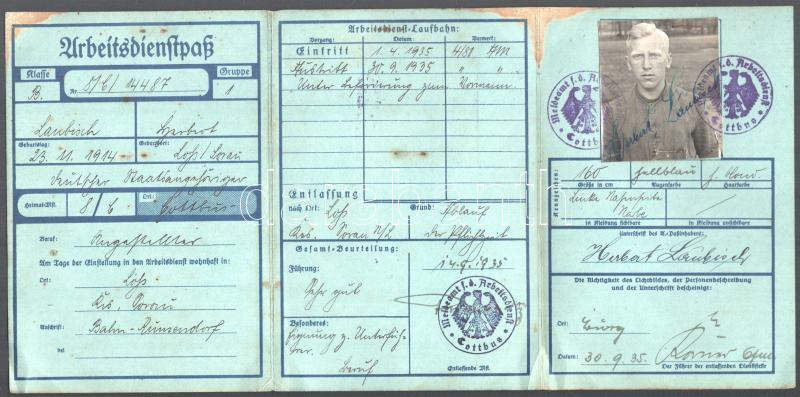 Arbeitsdienstpaß
Klasse
B.
Nr.
14487
Gruppe
1
Laubisch Herbert
Geburtstag:
Geburtsort:
23. 11. 1914 Löß / Sorau
Deutscher Staatsangehöriger
Heimat-Mst.
8/6
Ort:
Cottbus
Beruf:
Angestellter
Am Tage der Einstellung in den Arbeitsdienst wohnhaft in:
Ort:
Löß
Krs. Sorau
Anschrift:
bei
Arbeitsdienst-Laufbahn:
Vorgang: Datum: Vermerk:
Eintritt 1. 4. 1935 4/81 AM
Austritt 30. 9. 1935 " "
Unter Beförderung zum Vormann
Entlassung
nach Ort:
Löß
Krs. Sorau N/L
Grund:
Ablauf
der Pflichtzeit
Gesamt-Beurteilung:
Führung:
Sehr gut
14. 9. 1935
Besonderes:
Eignung z. Unterfüh-
rer.
Beruf
Meldeamt f. d. Arbeitsdienst
Cottbus
Entlassende Mst.
Meldeamt f. d. Arbeitsdienst
Cottbus
Herbert Laubisch
Kennzeichen:
160 hellblau h. blond
Größe in cm Augenfarbe Haarfarbe
Linke
Narbe
in Kleidung sichtbar in Kleidung unsichtbar
Unterschrift des A.-Paßinhabers:
Herbert Laubisch
Die Richtigkeit des Lichtbildes, der Personenbeschreibung
und der Unterschrift bescheinigt:
Ort:
Burg
Datum:
30. 9. 35.
Der Führer der entlassenden Dienststelle